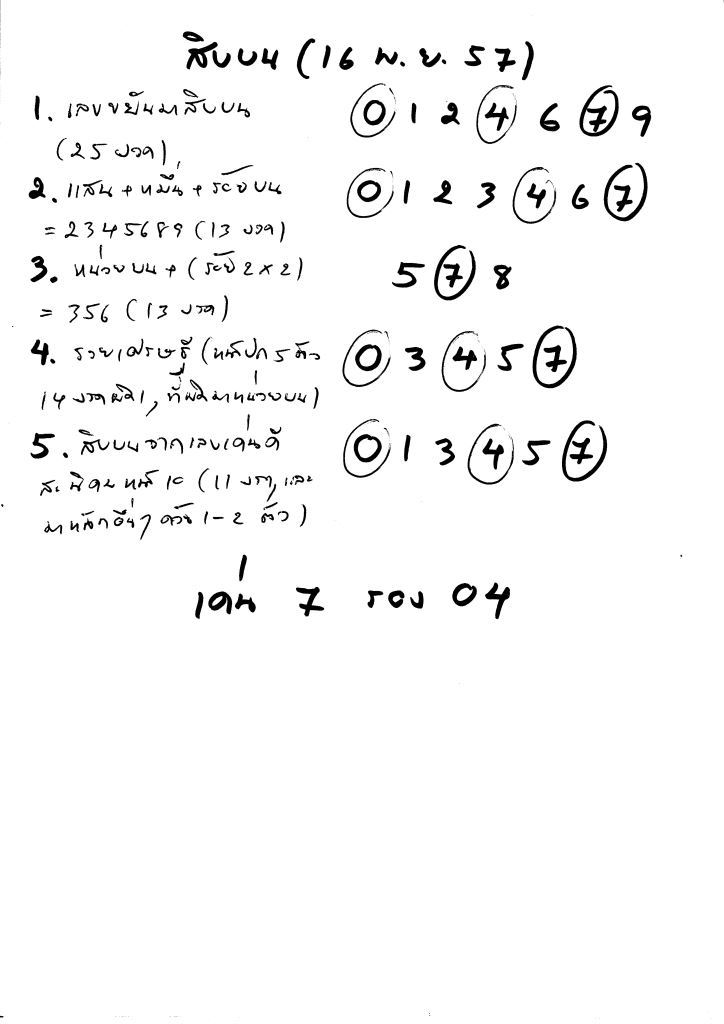 สิบบน (16 พ.ย. 57)
1. เลขขยันมาสิบบน 0 1 2 4 6 7 9
(25 งวด)
2. แสน + หมื่น + ระยับบน 0 1 2 3 4 6 7
= 2345689 (13 งวด)
3. หน่วยบน + ( 2 x 2) 5 7 8
= 356 (13 งวด)
4. รวยเศรษฐี ( 5 ตัว 0 3 4 5 7
14 งวดผิด 1, ที่ผิดมาหน่วยบน)
5. สิบบนจากเลขเด่นดี 0 1 3 4 5 7
(11 งวด, และ
มาหลักอื่นๆ ด้วย 1-2 ตัว)
เด่น 7 รอง 04